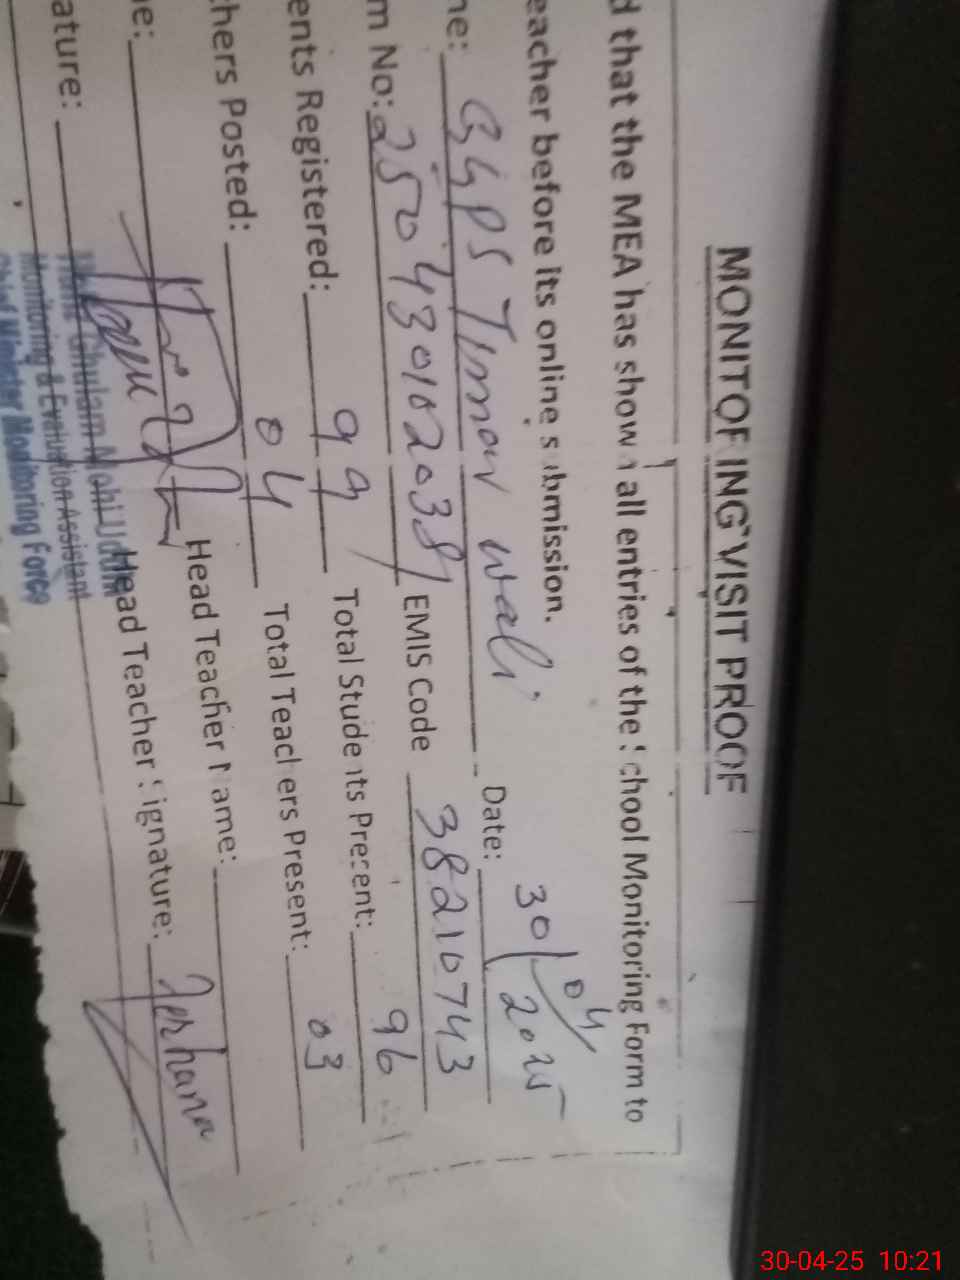 MONITORING VISIT PROOF
d that the MEA has shown all entries of the School Monitoring Form to
eacher before its online submission.
ne: GGPS Timar Wali Date: 30/04/2025
m No: 25043010203 EMIS Code 38210743
ents Registered: 99 Total Students Present: 96
chers Posted: 04 Total Teachers Present: 03
e: Head Teacher Name:
ature: Head Teacher Signature: Ferhana
Ghulam Mohi Uddin
Monitoring & Evaluation Assistant
Chief Minister Monitoring Force
30-04-25 10:21